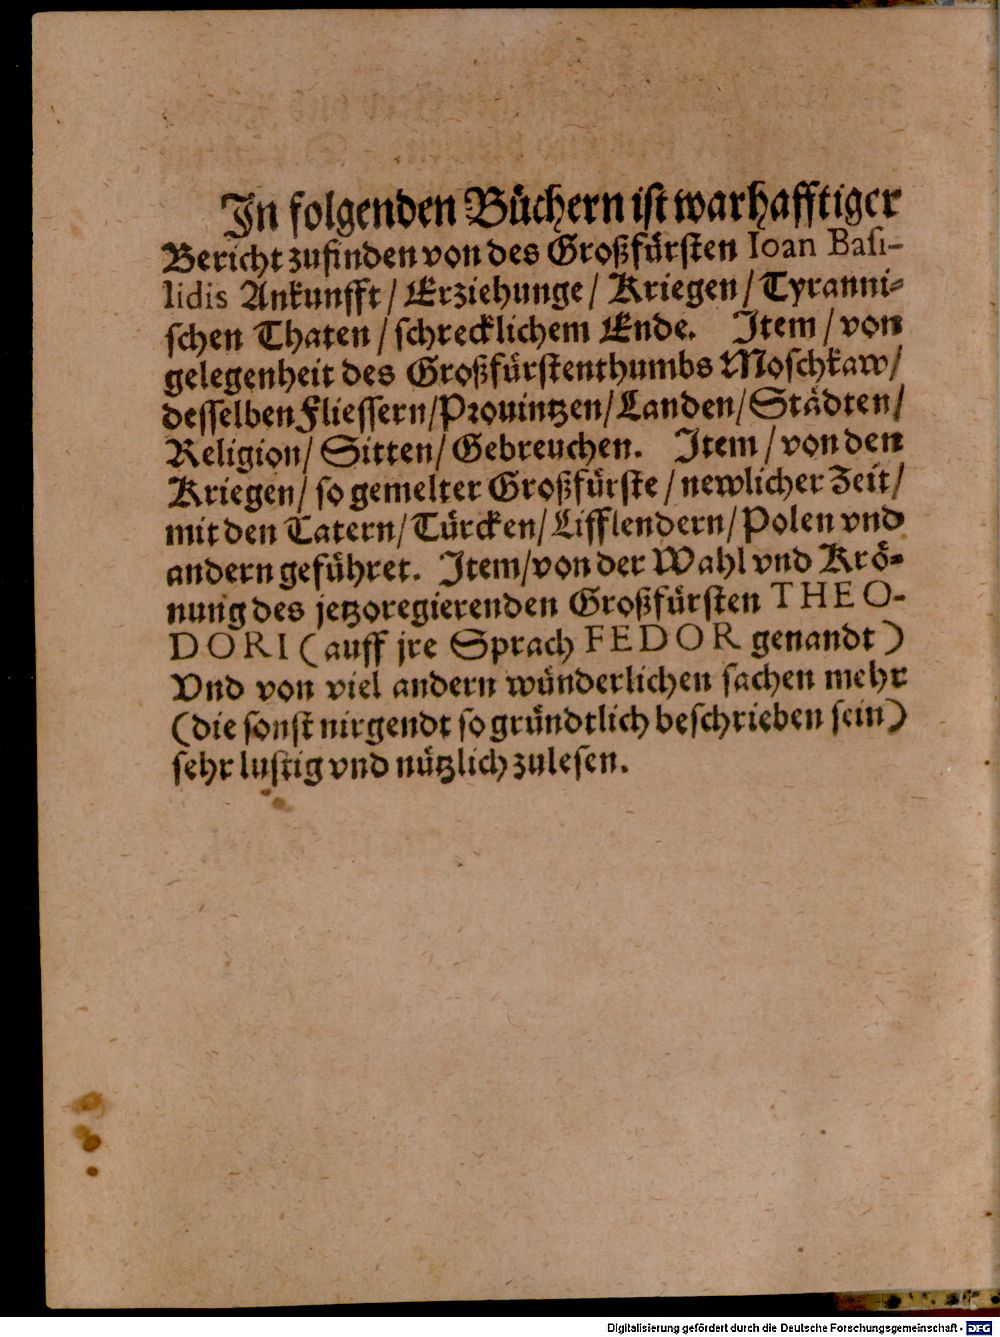 In folgenden Büchern ist warhafftiger
Bericht zufinden von des Großfürsten Ioan Basi-
lidis Ankunfft / Erziehunge / Kriegen / Tyranni-
schen Thaten / schrecklichem Ende. Item / von
gelegenheit des Großfürstenthumbs Moschkaw /
desselben Fliessern / Prouintzen / Landen / Städten /
Religion / Sitten / Gebreuchen. Item / von den
Kriegen / so gemelter Großfürste / newlicher Zeit /
mit den Tatern / Türcken / Lifflendern / Polen vnd
andern geführet. Item / von der Wahl vnd Krö-
nung des jetzoregierenden Großfürsten THEO-
DORI (auff jre Sprach FEDOR genandt)
Vnd von viel andern wünderlichen sachen mehr
(die sonst nirgendt so gründtlich beschrieben sein)
sehr lustig vnd nützlich zulesen.
Digitalisierung gefördert durch die Deutsche Forschungsgemeinschaft - DFG